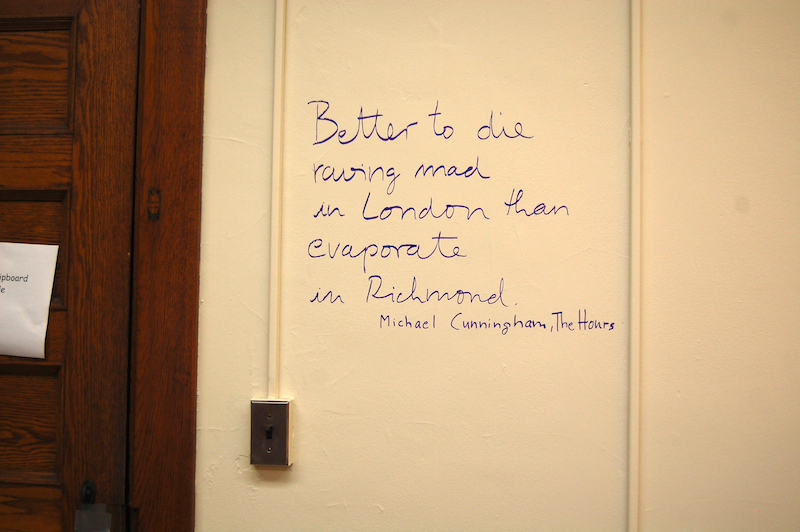 Better to die
raving mad
in London than
evaporate
in Richmond.
Michael Cunningham, The Hours